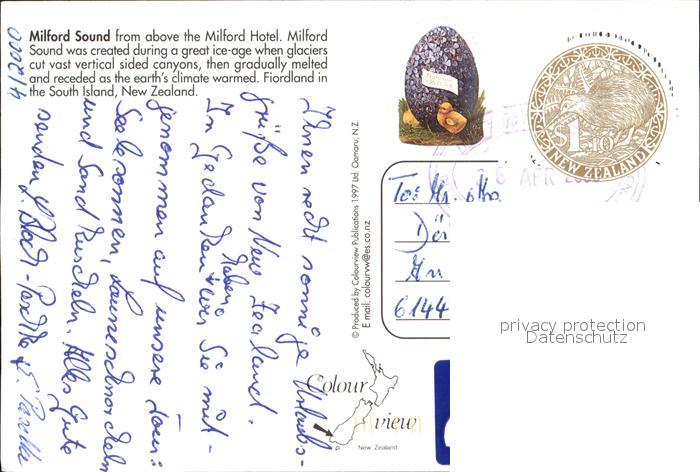 Milford Sound from above the Milford Hotel. Milford
Sound was created during a great ice-age when glaciers
cut vast vertical sided canyons, then gradually melted
and receded as the earth's climate warmed. Fiordland in
the South Island, New Zealand.
Ihnen recht sonnige Urlaubs-
grüße von New Zealand.
In Gedanken haben wir Sie mit-
genommen auf unsere Tour:
Seele sonnen,
und Sand kuscheln. Alles Gute
senden
© Produced by Colourview Publications 1997 Ltd. Oamaru, N.Z.
E mail: colourvw@es.co.nz
$1.10
NEW ZEALAND
APR
To: Hr. u. Fr.
6144
privacy protection
Datenschutz
Colour
view
New Zealand